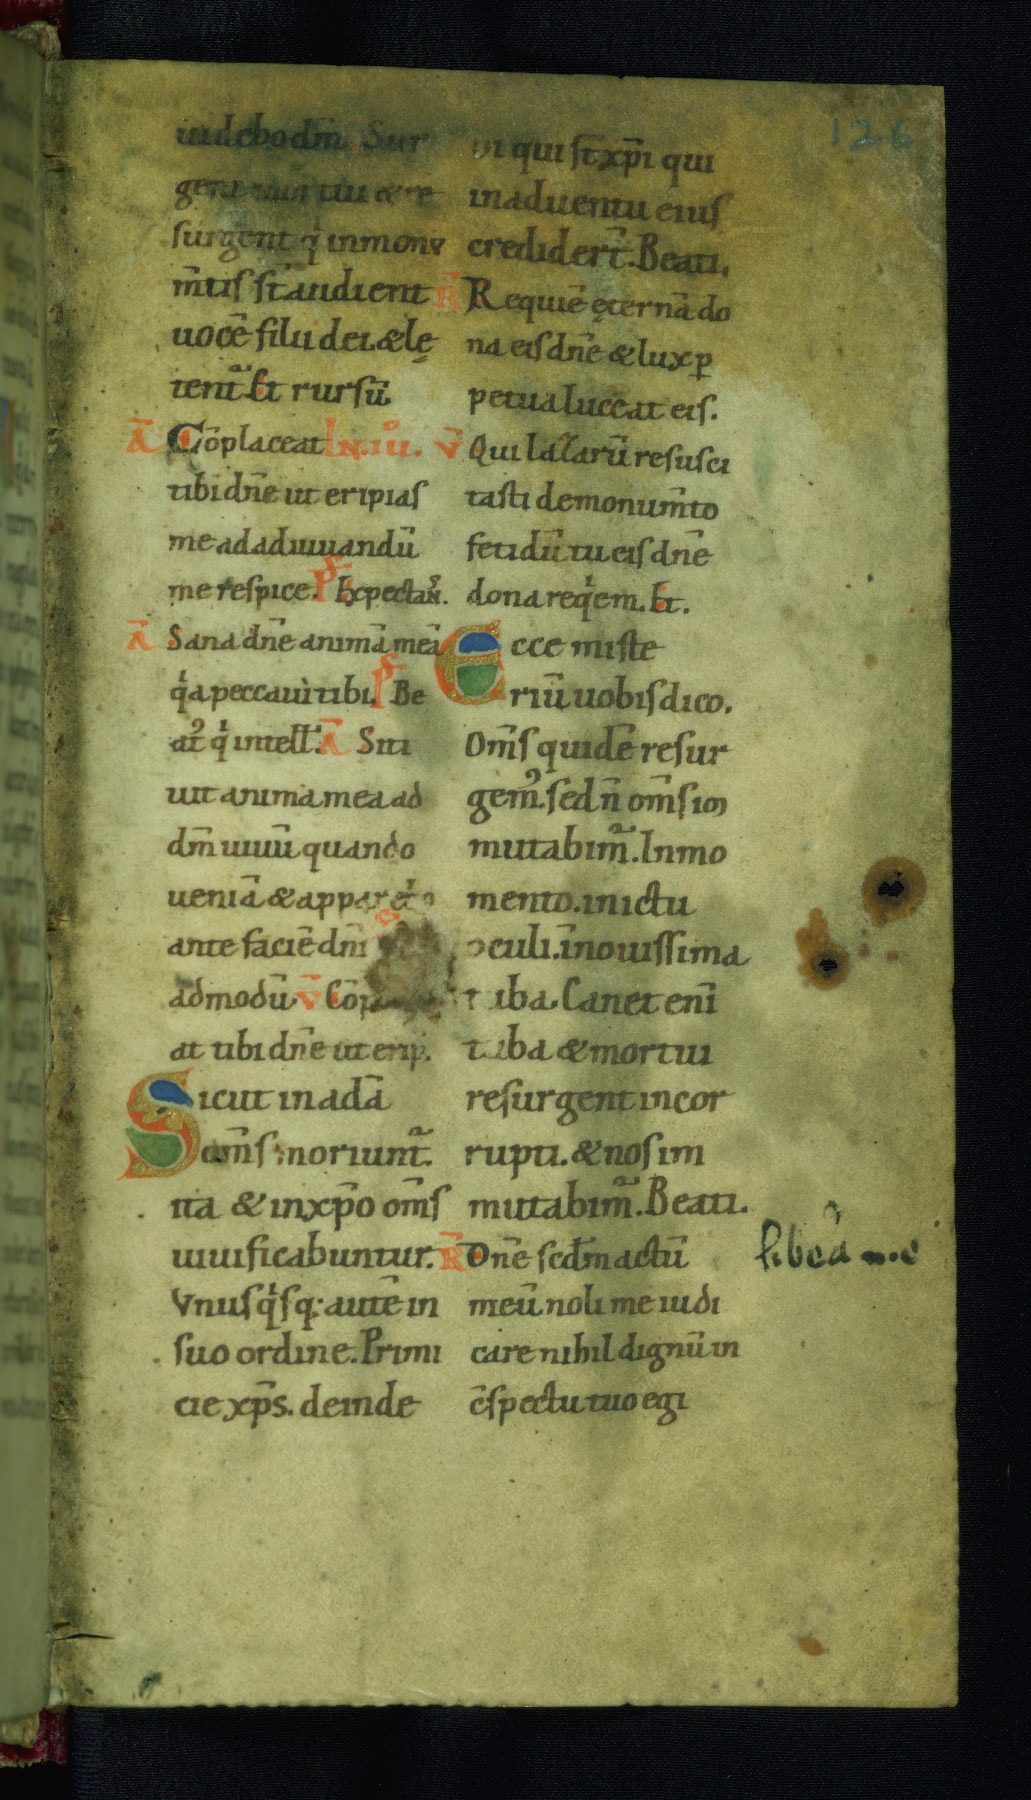 uidebo dm̄. Sur
gent mortui & re
surgent q̇ in monu
m̄tis st̄ audient
uocē filii dei. & lę
tent᷑. Et rursū.
Ā Cōplaceat In .iii.
tibi dn̄e ut eripias
me ad adiuuandū
me respice. Ps Expectan̄.
Ā Sana dn̄e animā meā
q̇a peccaui tibi. Ps Be
at᷒ q̇ intell̄. Ā Siti
uit anima mea ad
dm̄ uiuū quando
ueniā & apparebo
ante faciē dn̄i
admodū V̄ Cōp
at tibi dn̄e ut erip.
Sicut in adā
om̄s moriunt᷑.
ita & in xp̄o om̄s
uiuificabuntur.
Vnusq̇sq; autē in
suo ordine. Primi
cie xp̄s. deinde
ii qui st̄ xp̄i qui
in aduentu eius
credidert̄. Beati.
R̄ Requiē ęternā do
na eis dn̄e & lux ꝑ
petua luceat eis.
V̄ Qui lazarū resusci
tasti de monum̄to
fetidū tu eis dn̄e
dona req̇em. Et.
Ecce miste
riū uobis dico.
Om̄s quidē resur
gem᷒. sed n̄ om̄s in
mutabim᷑. In mo
mento. in ictu
oculi. ī nouissima
tuba. Canet eni̅
tuba & mortui
resurgent incor
rupti. & nos im
mutabim᷑. Beati.
R̄ Dn̄e scdm̄ actū
meū noli me iudi
care nihil dignū in
c̄spectu tuo egi
libera me
126